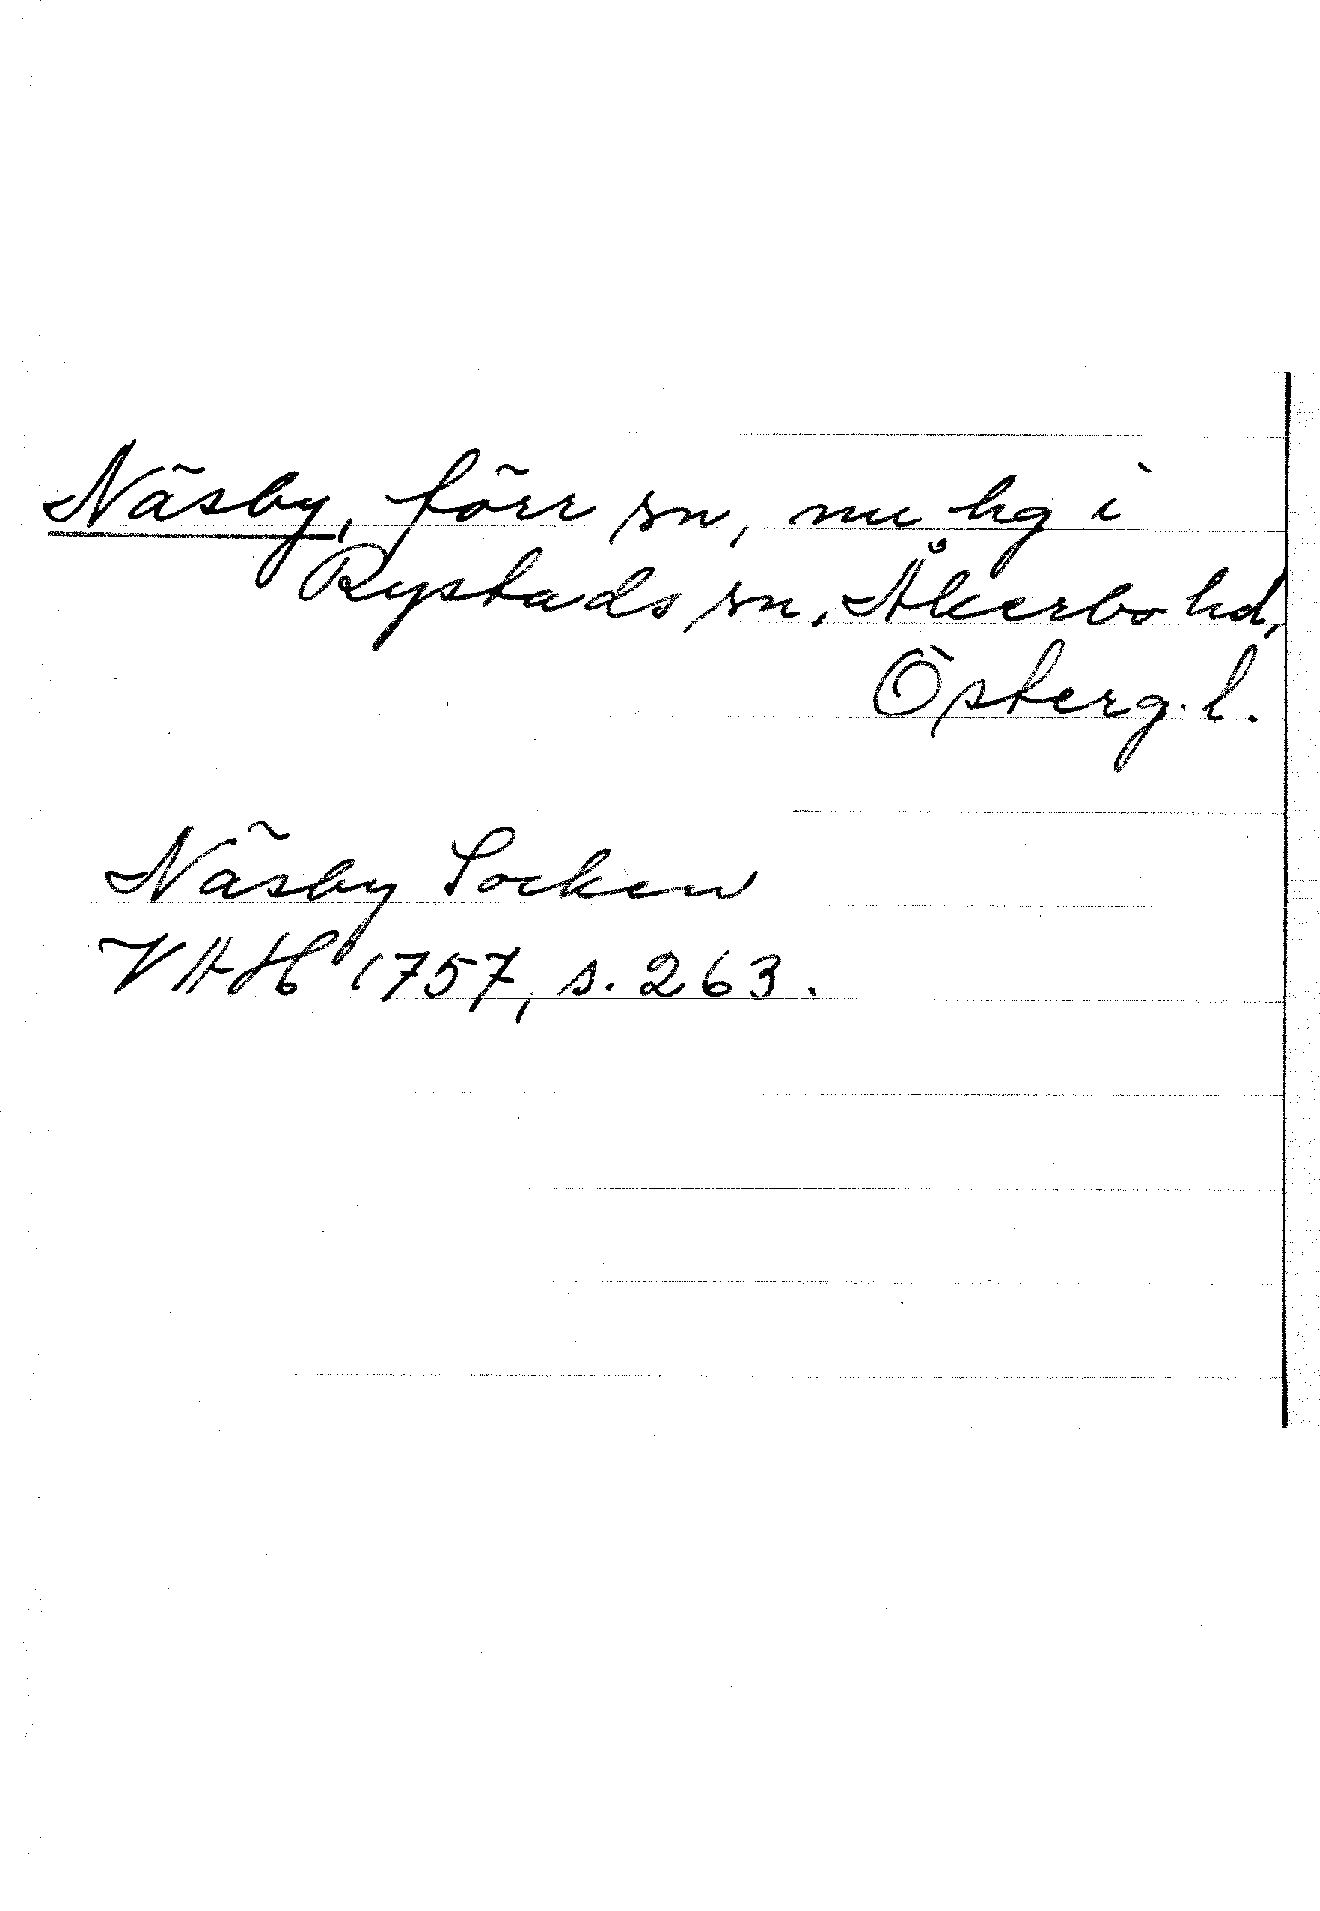 Näsby, förr sn, nu hg i
Rystads sn, Åkerbo hd,
Österg. l.
Näsby Socken
VAH 1757, s. 263.